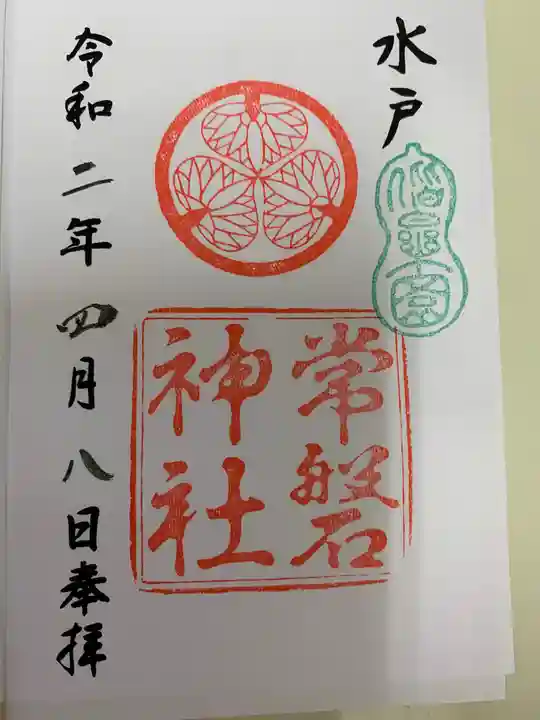 水戸
偕楽園
常磐
神社
令和二年四月八日奉拝